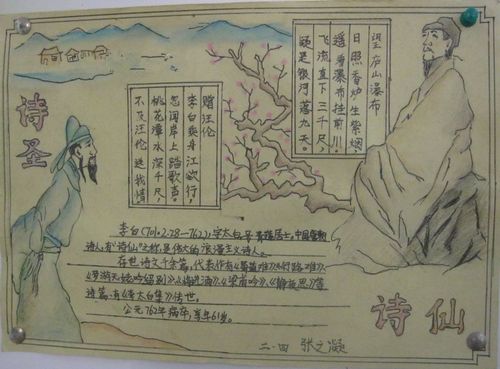 诗圣
赠汪伦
李白乘舟将欲行,
忽闻岸上踏歌声。
桃花潭水深千尺,
不及汪伦送我情
望庐山瀑布
日照香炉生紫烟,
遥看瀑布挂前川
飞流直下三千尺,
疑是银河落九天。
李白(701.2.28—762),字太白号青莲居士。中国唐朝
诗人,有“诗仙”之称,是伟大的浪漫主义诗人。
在世诗文千余篇,代表作有《蜀道难》《行路难》、
《梦游天姥吟留别》、《将进酒》、《梁甫吟》、《静夜思》等
诗篇。有《李太白集》传世。
公元762年病卒,享年61岁。
诗仙
二.四 张之凝